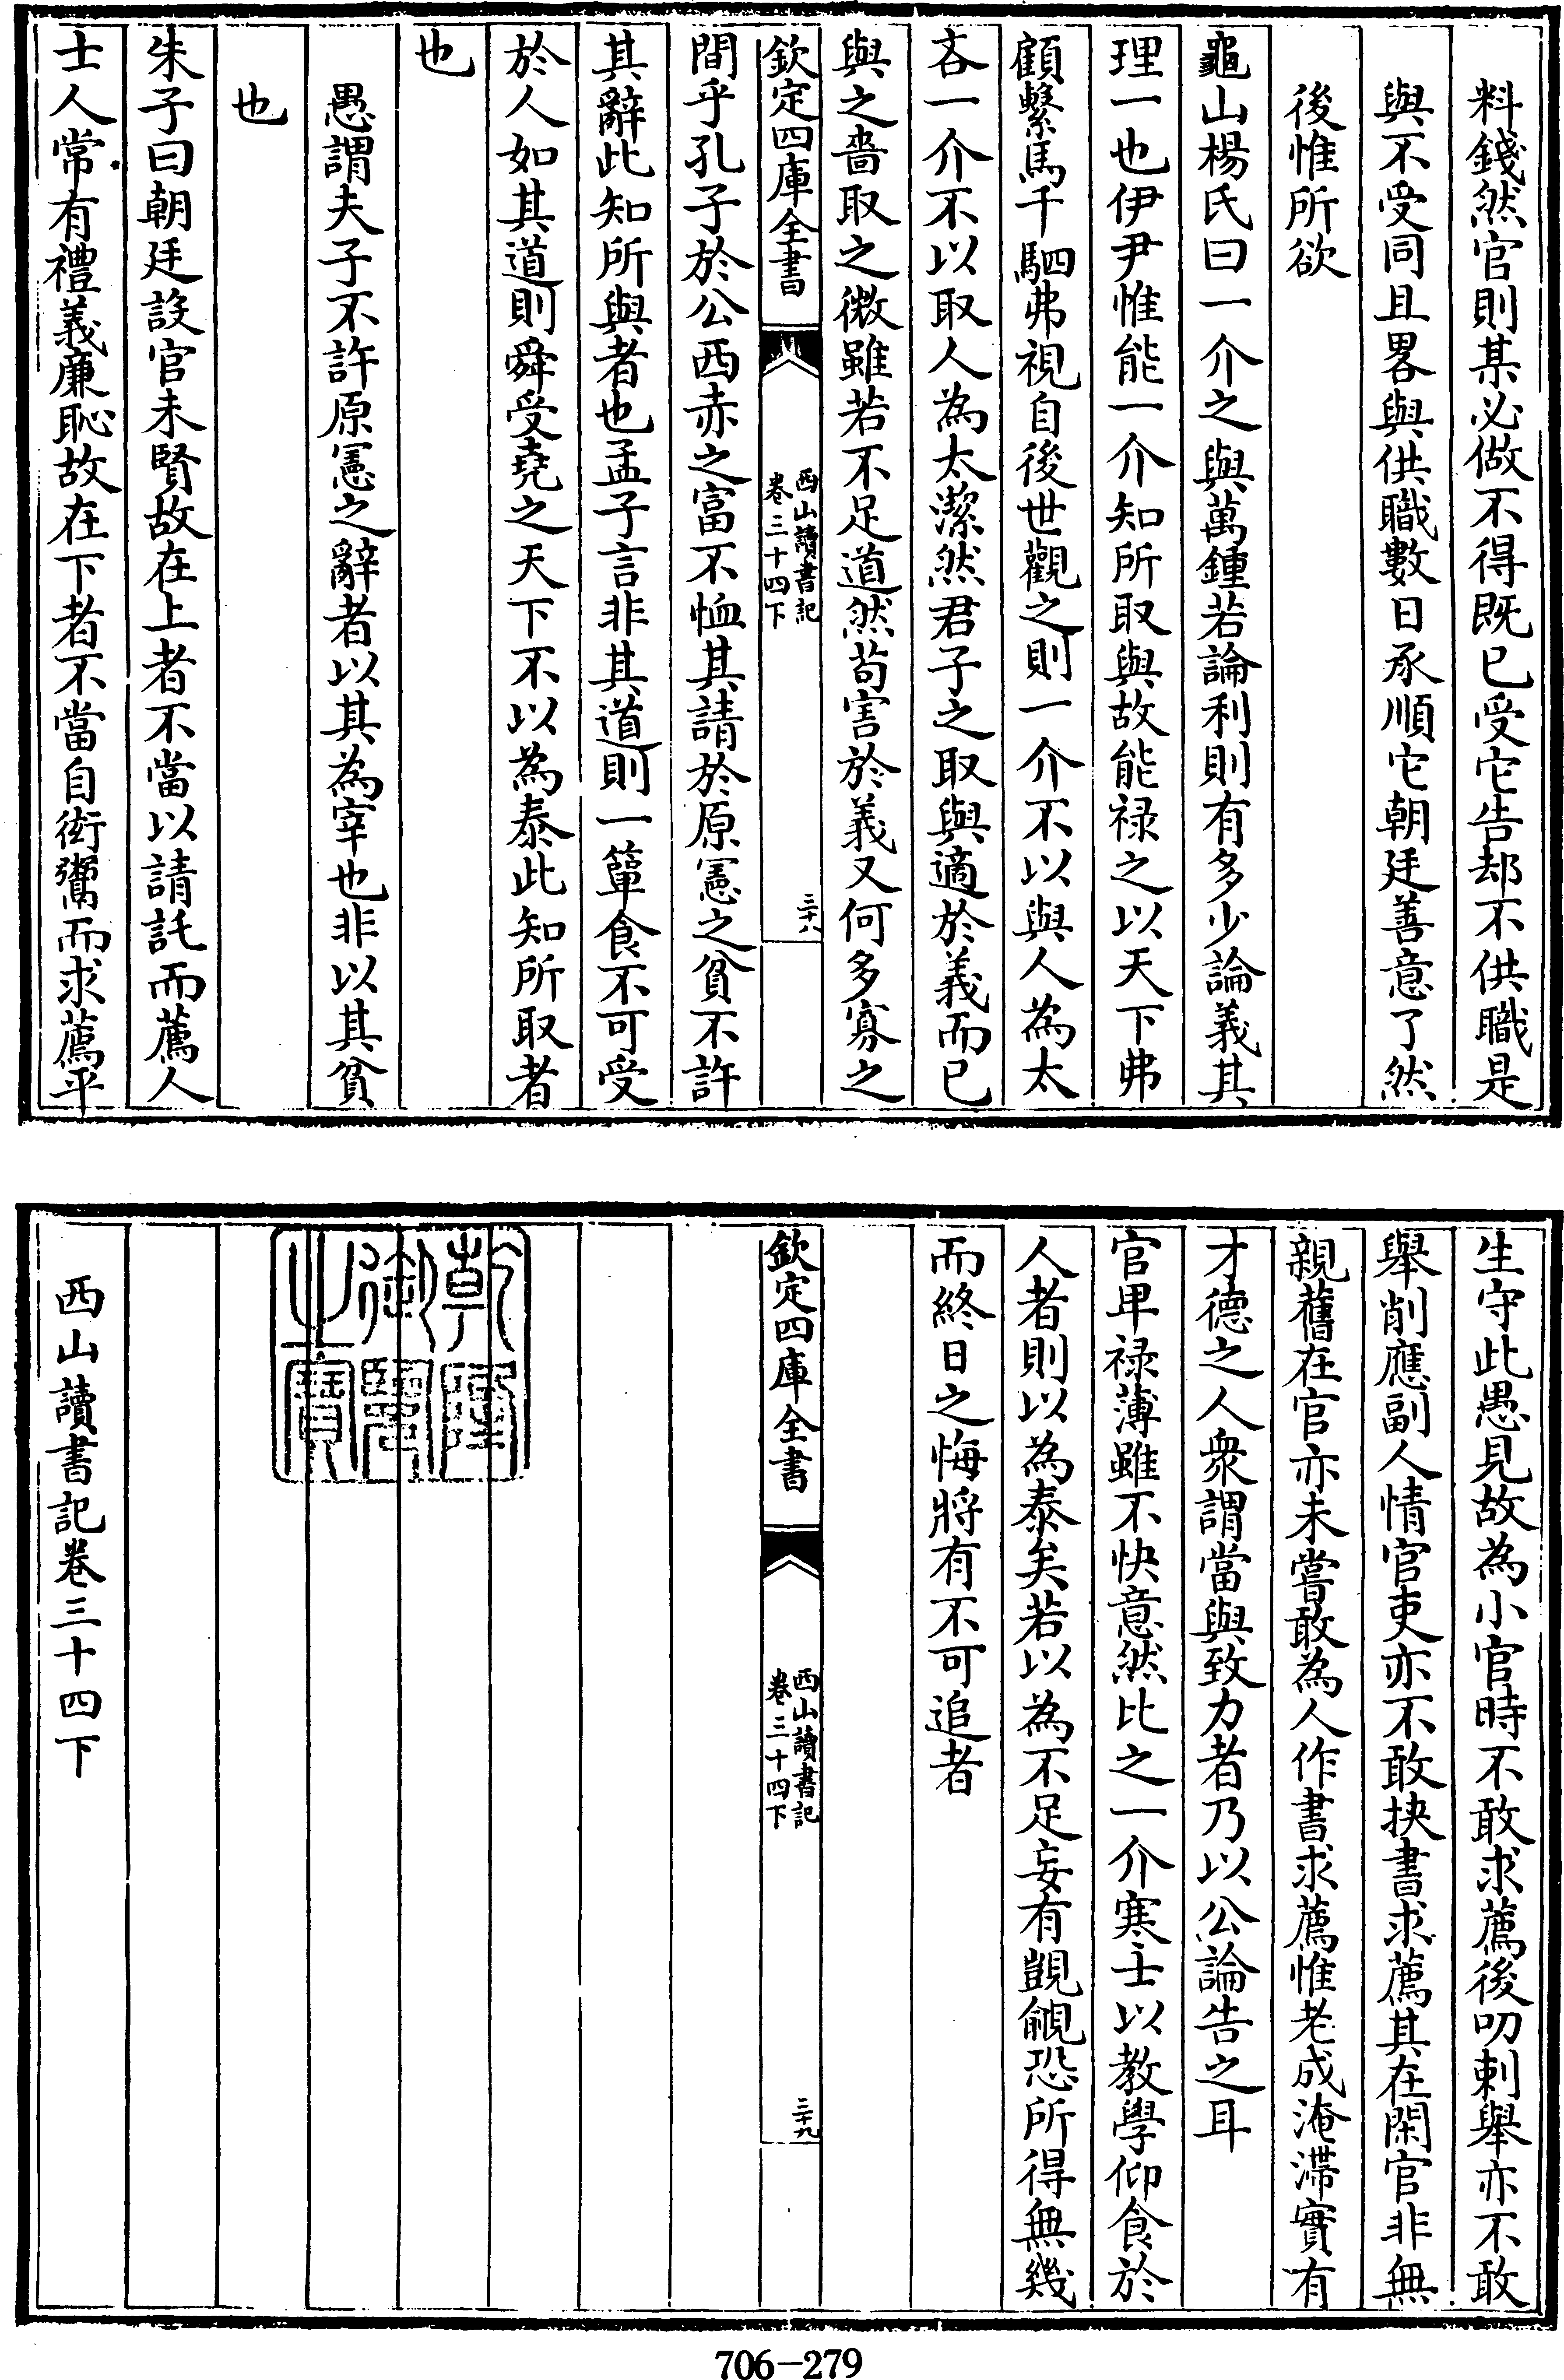 料錢然官則某必做不得既已受它告却不供職是
與不受同且畧與供職數日承順它朝廷善意了然
後惟所欲
龜山楊氏曰一介之與萬鍾若論利則有多少論義其
理一也伊尹惟能一介知所取與故能祿之以天下弗
顧繫馬千駟弗視自後世觀之則一介不以與人為太
吝一介不以取人為太潔然君子之取與適於義而已
與之嗇取之微雖若不足道然苟害於義又何多寡之
欽定四庫全書
西山讀書記
卷三十四下
三十八
間乎孔子於公西赤之富不恤其請於原憲之貧不許
其辭此知所與者也孟子言非其道則一簞食不可受
於人如其道則舜受堯之天下不以為泰此知所取者
也
愚謂夫子不許原憲之辭者以其為宰也非以其貧
也
朱子曰朝廷設官未賢故在上者不當以請託而薦人
士人常有禮義廉恥故在下者不當自衒鬻而求薦平
生守此愚見故為小官時不敢求薦後叨刺舉亦不敢
舉削應副人情官吏亦不敢抉書求薦其在閑官非無
親舊在官亦未嘗敢為人作書求薦惟老成淹滯實有
才德之人衆謂當與致力者乃以公論告之耳
官卑祿薄雖不快意然比之一介寒士以教學仰食於
人者則以為泰矣若以為不足妄有覬覦恐所得無幾
而終日之悔將有不可追者
欽定四庫全書
西山讀書記
卷三十四下
三十九
乾隆御覽之寶
西山讀書記卷三十四下
706-279